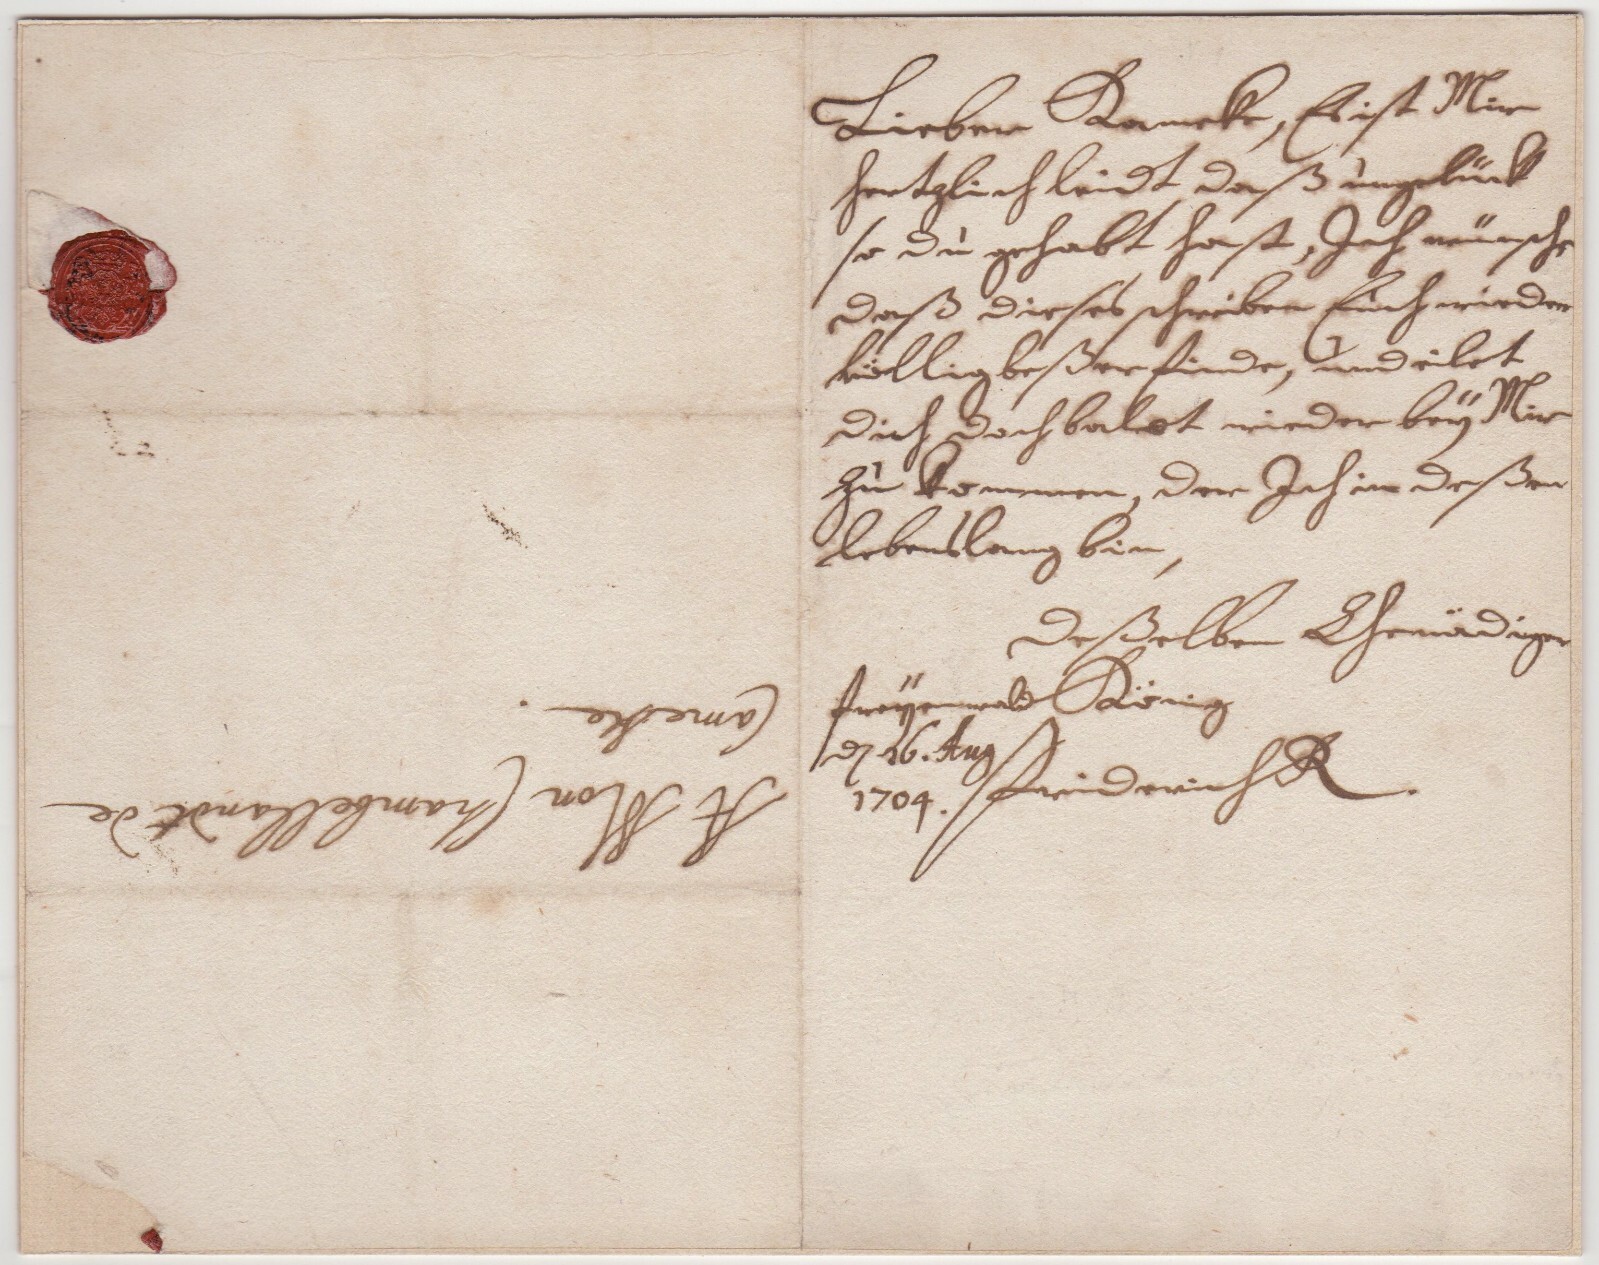 Lieber Kameke, Es ist Mir
hertzlich leidt daß ungelück
so du gehabt hast, Ich wünsche
daß dieses schreiben Euch wieder
völlig beßer finde, und eilet
dich doch baldt wieder beÿ Mir
zu kommen, der Ich in deßen
lebenslang bin,
deßelben
freÿenwald König
d 16. Aug
1704. Friderich R.
A Mon Chambellandt de
Camecke.